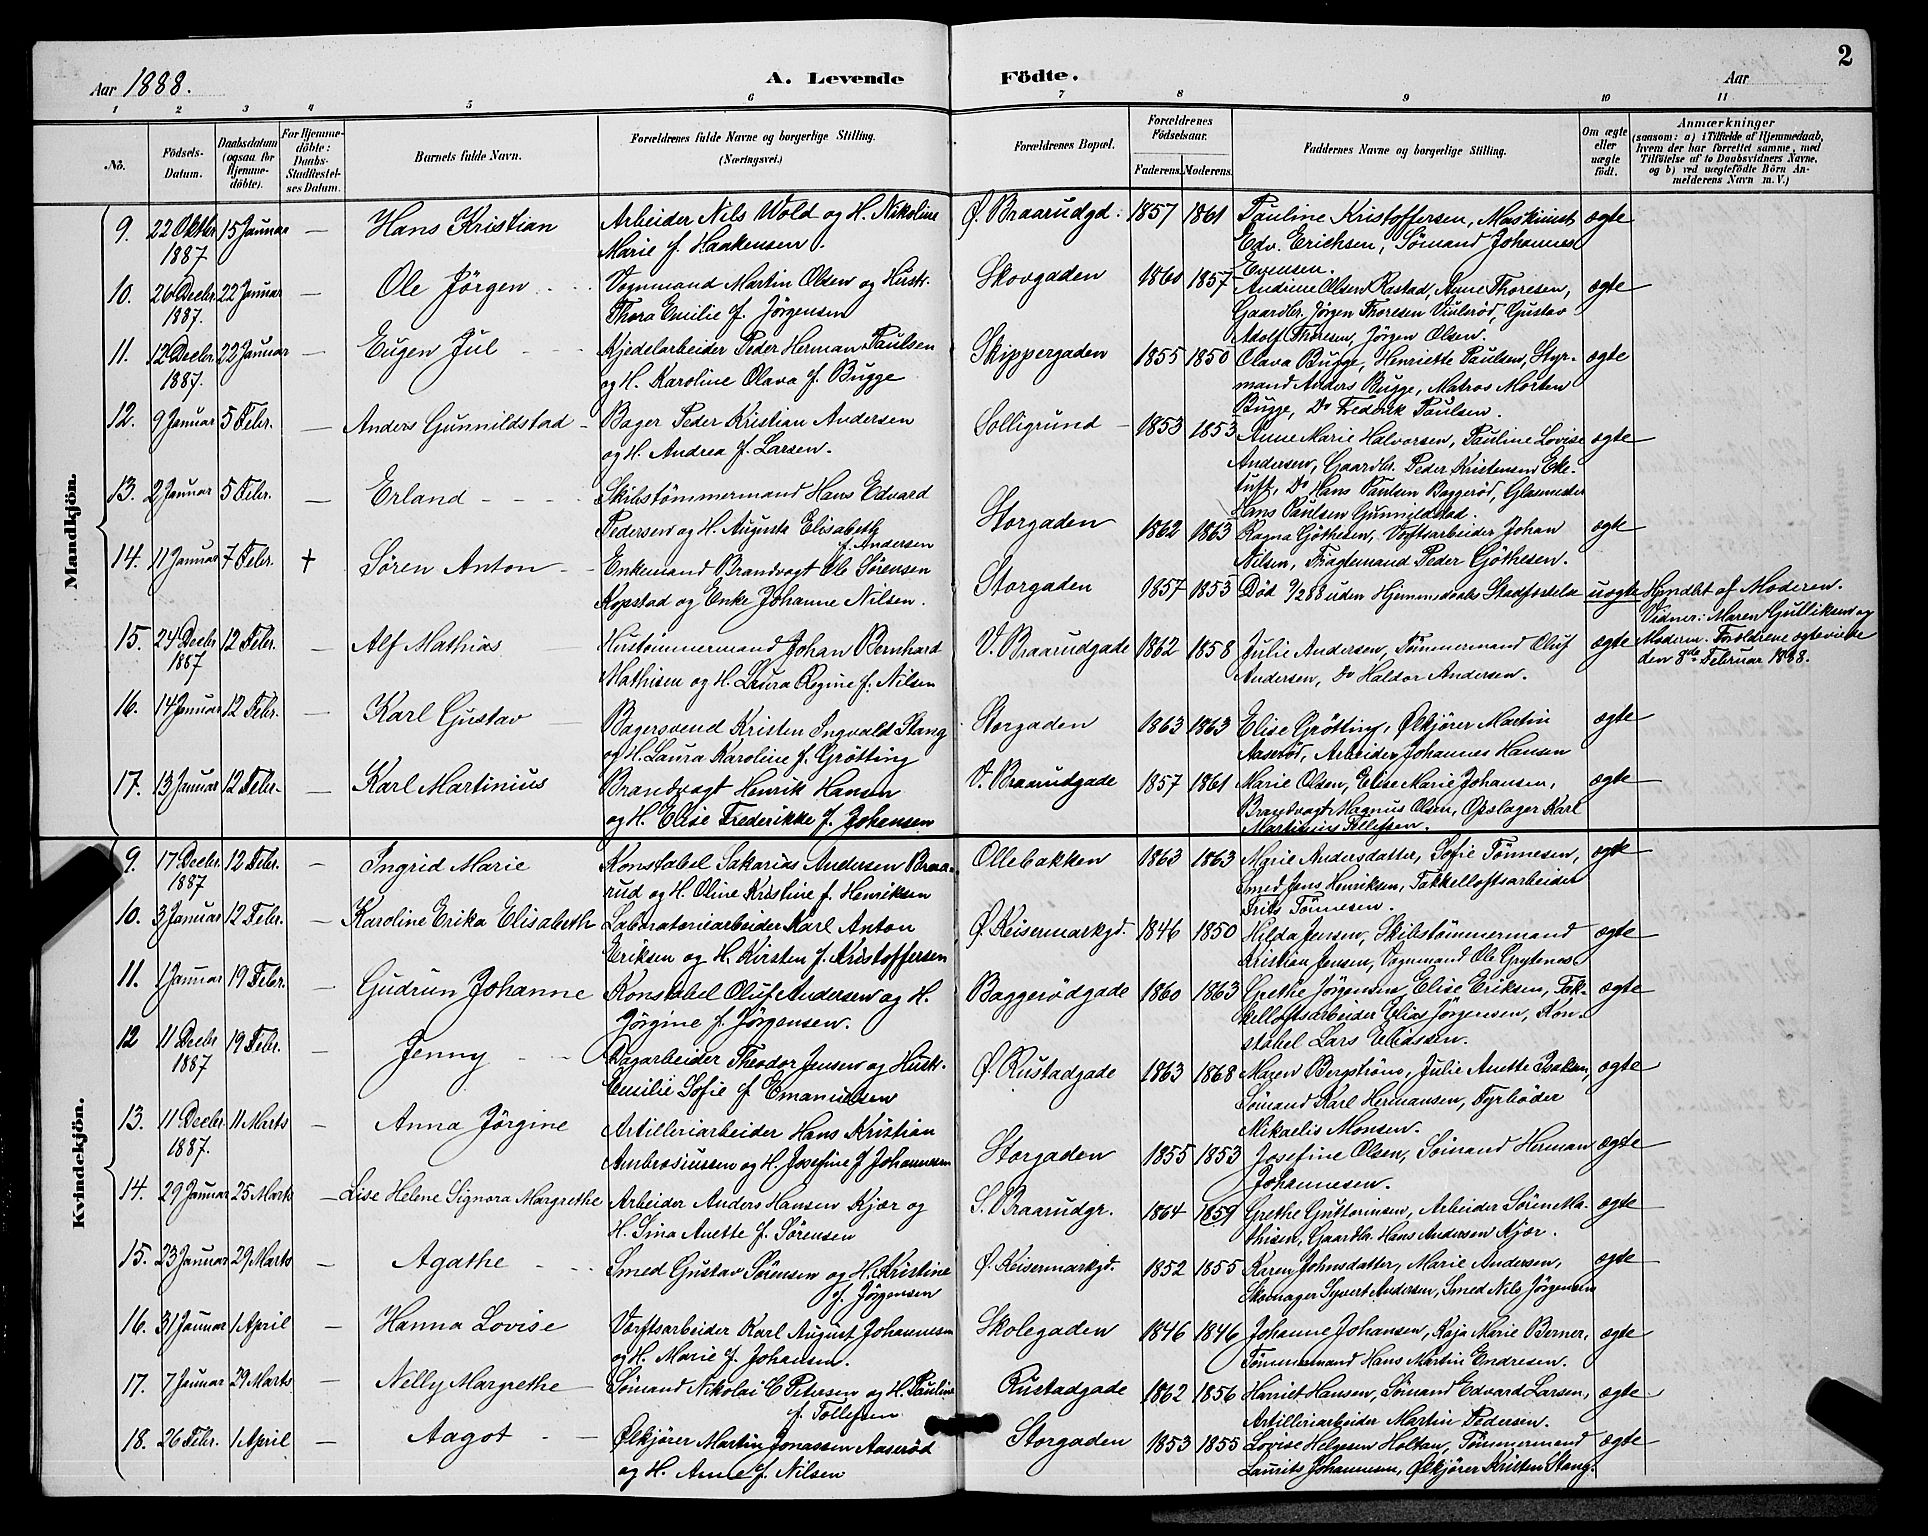 2
Aar 1888. A. Levende Födte. Aar
1 2 3 4 5 6 7 8 9 10 11
No. Födsels-Datum. Daabsdatum (ogsaa for Hjemme-döbte). For Hjemme-döbte: Daabs-Stadfæstel-ses Datum. Barnets fulde Navn. Forældrenes fulde Navne og borgerlige Stilling. (Næringsvei.) Forældrenes Bopæl. Forældrenes Födselsaar. Faderens. Moderens. Faddernes Navne og borgerlige Stilling. Om ægte eller uægte födt. Anmærkninger (saasom: a) i Tilfælde af Hjemmedaab, hvem der har forrettet samme, med Tilföielse af to Daabsvidners Navne, og b) ved uægtefödte Börn An-melderens Navn m. V.)
Mandkjön.
9. 22 Oktbr 1887 15 Januar — Hans Kristian Arbeider Nils Wold og H. Nikoline
Marie f. Haakensen. Ø. Braarudgd: 1857 1861 Pauline Kristoffersen, Maskinist
Edv. Erichsen, Sömand Johannes
Evensen. ægte
10. 26 Decbr 1887. 22 Januar — Ole Jörgen Vognmand Martin Olsen og Hust.
Thora Emilie f. Jörgensen Skovgaden 1860 1857 Andine Olsen Rastad, Anne Thoresen,
Gaardbr. Jörgen Thoresen Viulsröd, Gustav
Adolf Thoresen, Jörgen Olsen. ægte
11. 12 Decbr 1887. 22 Januar — Eugen Jul Kjedelarbeider Peder Herman Paulsen
og H. Karoline Olava f. Bugge Skippergaden 1855 1850 Olava Bugge, Henriette Paulsen, Styr-
mand Anders Bugge, Matros Morten
Bugge, Do Frederik Paulsen. ægte
12. 9 Januar 5 Febr. — Anders Gunnildstad Bager Peder Kristian Andersen
og H. Andrea f. Larsen. Solligrund 1853 1853 Anne Marie Halvorsen, Pauline Lovise
Andersen, Gaardbr. Peder Kristensen Eke-
tuft, Do Hans Paulsen Baggeröd, Glasmester
Hans Paulsen Gunnildstad. ægte
13. 2 Januar 5 Febr. — Erland Skibstömmermand Hans Edvard
Pedersen og H. Augusta Elisabeth
f. Andersen Storgaden 1862 1863 Ragna Göthesen, Værftsarbeider Johan
Nilsen, Fragtemand Peder Göthesen. ægte
14. 11 Januar 7 Febr. + Sören Anton Enkemand Brandvagt Ole Sörensen
Kopstad og Enke Johanne Nilsen. Storgaden 1857 1853 Död 9/2 88 uden Hjemmedaabs Stadfæstelse uægte Hjmdbt af Moderen.
Vidner: Maren Gulliksen og
Modern. Forældrene ægteviede
den 8de Februar 1888.
15. 24 Decbr 1887 12 Febr. — Alf Mathias Hustömmermand Johan Bernhard
Mathisen og H. Laura Regine f. Nilsen V. Braarudgade 1862 1858 Julie Andersen, Tömmermand Oluf
Andersen, Do Haldor Andersen. ægte
16. 14 Januar 12 Febr. — Karl Gustav Bagersvend Kristen Ingvald Stang
og H. Laura Karoline f. Grötting Storgaden 1863 1863 Elise Grötting, Ølkjörer Martin
Aaseröd, Arbeider Johannes Hansen ægte
17. 13 Januar 12 Febr. — Karl Martinius Brandvagt Henrik Hansen
og H. Elise Frederikke f. Johansen V. Braarudgade 1857 1861 Marie Olsen, Elise Marie Johansen,
Brandvagt Magnus Olsen, Opslager Karl
Martinius Tollefsen. ægte
Kvindekjön.
9. 17 Decbr 1887 12 Febr. — Ingrid Marie Konstabel Sakarias Andersen Braa-
rud og H. Oline Kristine f. Henriksen Ollebakken 1863 1863 Marie Andersdatter, Sofie Tönnesen,
Smed Jens Henriksen, Takkelloftsarbeider
Frits Tönnesen. ægte
10. 3 Januar 12 Febr. — Karoline Erika Elisabeth Laboratoriearbeider Karl Anton
Eriksen og H. Kirsten f. Kristoffersen Ø. Keisermarkgd. 1846 1850 Hilda Jensen, Skibstömmermand
Kristian Jensen, Vognmand Ole Grytenes ægte
11. 1 Januar 19 Febr. — Gudrun Johanne Konstabel Oluf Andersen og H.
Jörgine f. Jörgensen. Baggerödgade 1860 1863 Grethe Jörgensen, Elise Eriksen, Tak-
kelloftsarbeider Elias Jörgensen, Kon-
stabel Lars Eliassen. ægte
12 11 Decbr 1887 19 Febr. — Jenny Dagarbeider Theodor Jensen og Hust.
Emilie Sofie f. Emanuelsen Ø. Rustadgade 1863 1868 Maren Bergström, Julie Anette Isaksen,
Sömand Karl Hermansen, Fyrböder
Mikaelis Monsen. ægte
13. 11 Decbr 1887. 11 Marts — Anna Jörgine Artilleriarbeider Hans Kristian
Ambrosiussen og H. Josefine f. Johannesen Storgaden 1855 1853 Josefine Olsen, Sömand Herman
Johannesen. ægte
14. 29 Januar 25 Marts — Lise Helene Signora Margrethe Arbeider Anders Hansen Kjær og
H. Sina Anette f. Sörensen S. Braarudgr. 1864 1859 Grethe Guttormsen, Arbeider Sören Ma-
thisen, Gaardbr. Hans Andersen Kjær. ægte
15. 23 Januar 29 Marts — Agathe Smed Gustav Sörensen og H. Kristine
f. Jörgensen Ø. Keisermarkgd. 1852 1855 Karen Johnsdatter, Marie Andersen,
Skomager Syvert Andersen, Smed Nils Jörgensen ægte
16. 31 Januar 1 April — Hanna Lovise Værftsarbeider Karl August Johannesen
og H. Marie f. Johansen. Skolegaden 1846 1846 Johanne Johansen, Kaja Marie Berner,
Tömmermand Hans Martin Endresen. ægte
17. 7 Januar 29 Marts — Nelly Margrethe Sömand Nikolai C Petersen og H. Pauline
f. Tollefsen Rustadgade 1862 1856 Harriet Hansen, Sömand Edvard Larsen,
Artilleriarbeider Martin Pedersen. ægte
18. 26 Febr. 1 April — Aagot Ølkjörer Martin Jonassen Aaseröd
og H. Anne f. Nilsen Storgaden 1853 1855 Lovise Helgesen Holtan, Tömmermand
Laurits Johannesen, Ølkjörer Kristen Stang. ægte